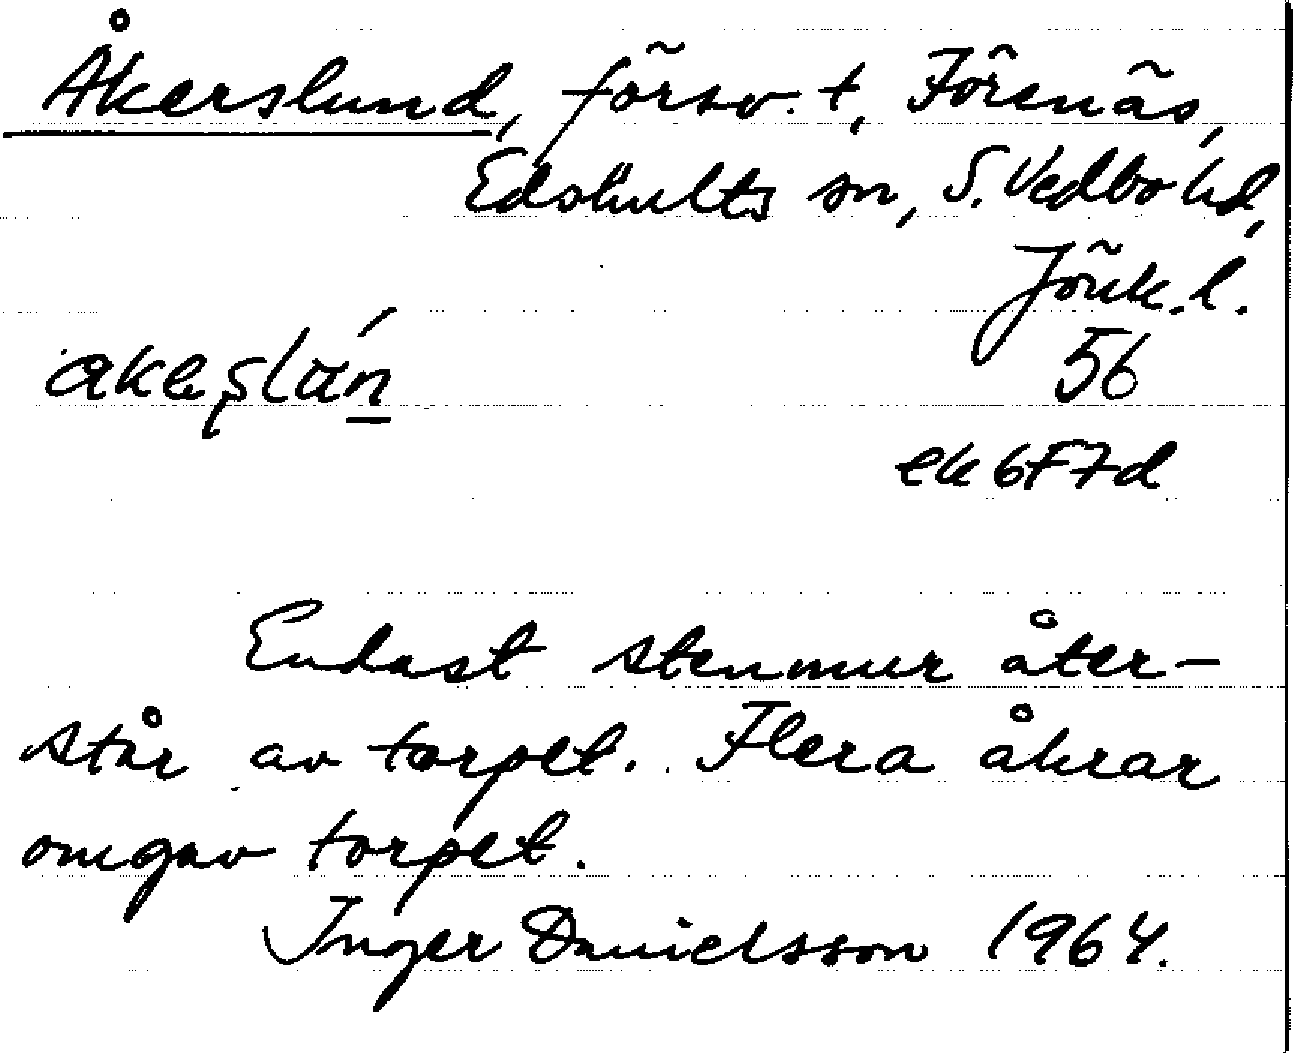 Åkerslund, försv. t, Förenäs,
Edshults sn, S. Vedbo hd,
Jönk. l.
56
ek 6F7d
Endast stenmur åter-
står av torpet. Flera åkrar
omgav torpet.
Inger Danielsson 1964.